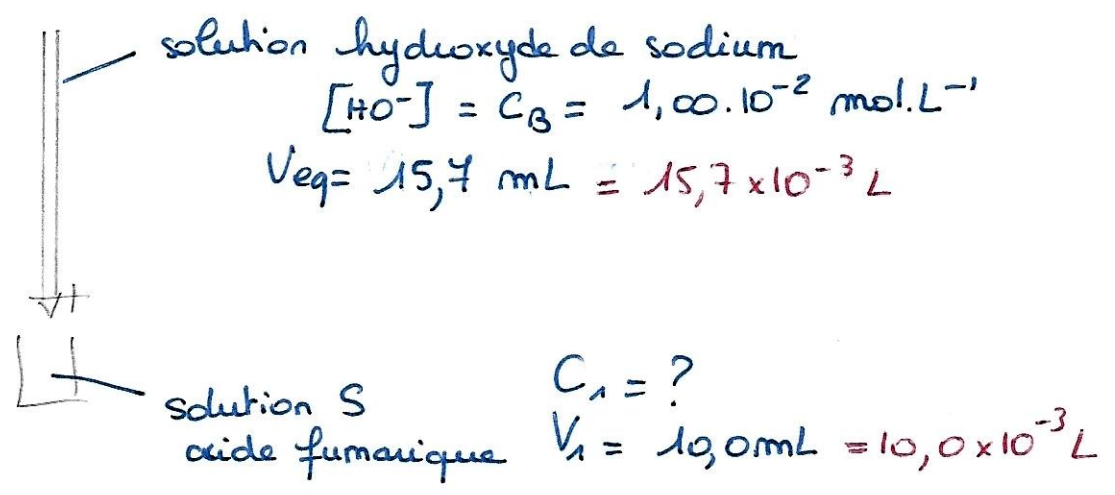 solution hydroxyde de sodium
[HO⁻] = C_B = 1,00.10⁻² mol.L⁻¹
Veq= 15,7 mL = 15,7 x10⁻³ L
solution S
acide fumarique
C₁ = ?
V₁ = 10,0mL =10,0x10⁻³ L